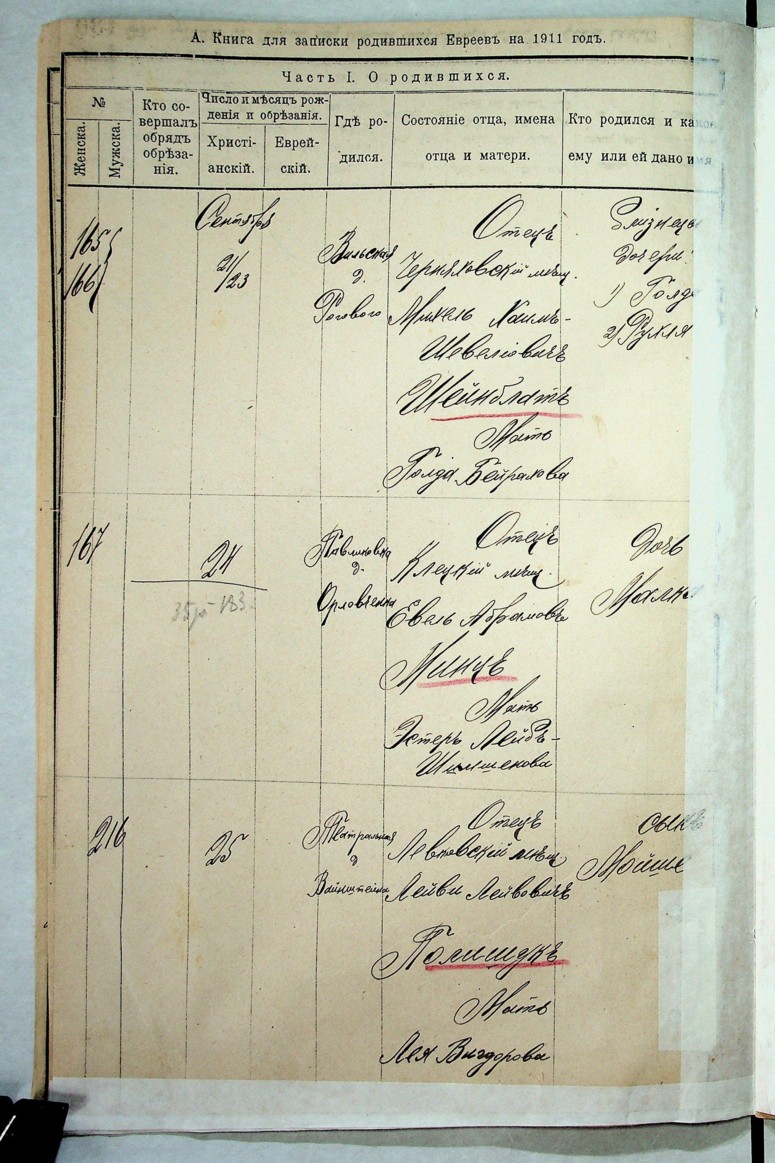 А. Книга для записки родившихся Евреевъ на 1911 годъ.
Часть I. О родившихся.
№
Женска.
Мужска.
Кто со-
вершалъ
обрядъ
обрѣза-
нія.
Число и мѣсяцъ рож-
денія и обрѣзанія.
Христі-
анскій.
Еврей-
скій.
Гдѣ ро-
дился.
Состояніе отца, имена
отца и матери.
Кто родился и како
ему или ей дано имя
165
166
Сентября
21/23
Вильская
д.
Рогового
Отецъ
Черняховскій мѣщ.
Михель Хаимъ-
Шевеліовичъ
Шейнблатъ
Мать
Голда Бейрахова
Близнецы
дочери:
1) Голда
2) Рухля
167
24
Павликовка
д.
Орловченко
Отецъ
Клецкій мѣщ.
Евель Абрамовъ
Минцъ
Мать
Эстеръ Лейбъ-
Шимшенова
Дочь
Малка
216
25
Театральная
д
Вайнштейна
Отецъ
Левковскій мѣщ
Лейви Лейвовичъ
Полищукъ
Мать
Лея Вигдорова
сынъ
Мойше